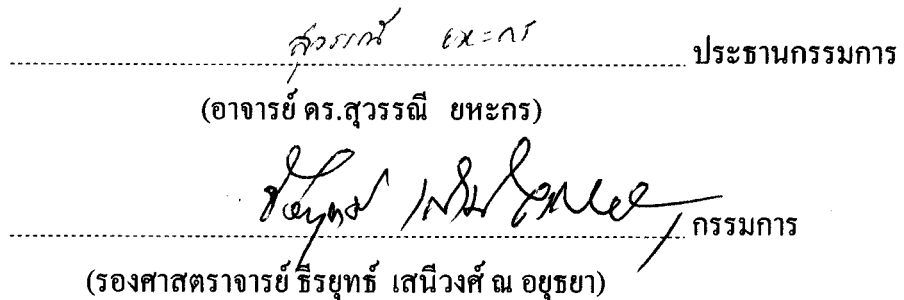 สุวรรณี ยหะกร ประธานกรรมการ
(อาจารย์ ดร.สุวรรณี ยหะกร)
กรรมการ
(รองศาสตราจารย์ ธีรยุทธ์ เสนีวงศ์ ณ อยุธยา)